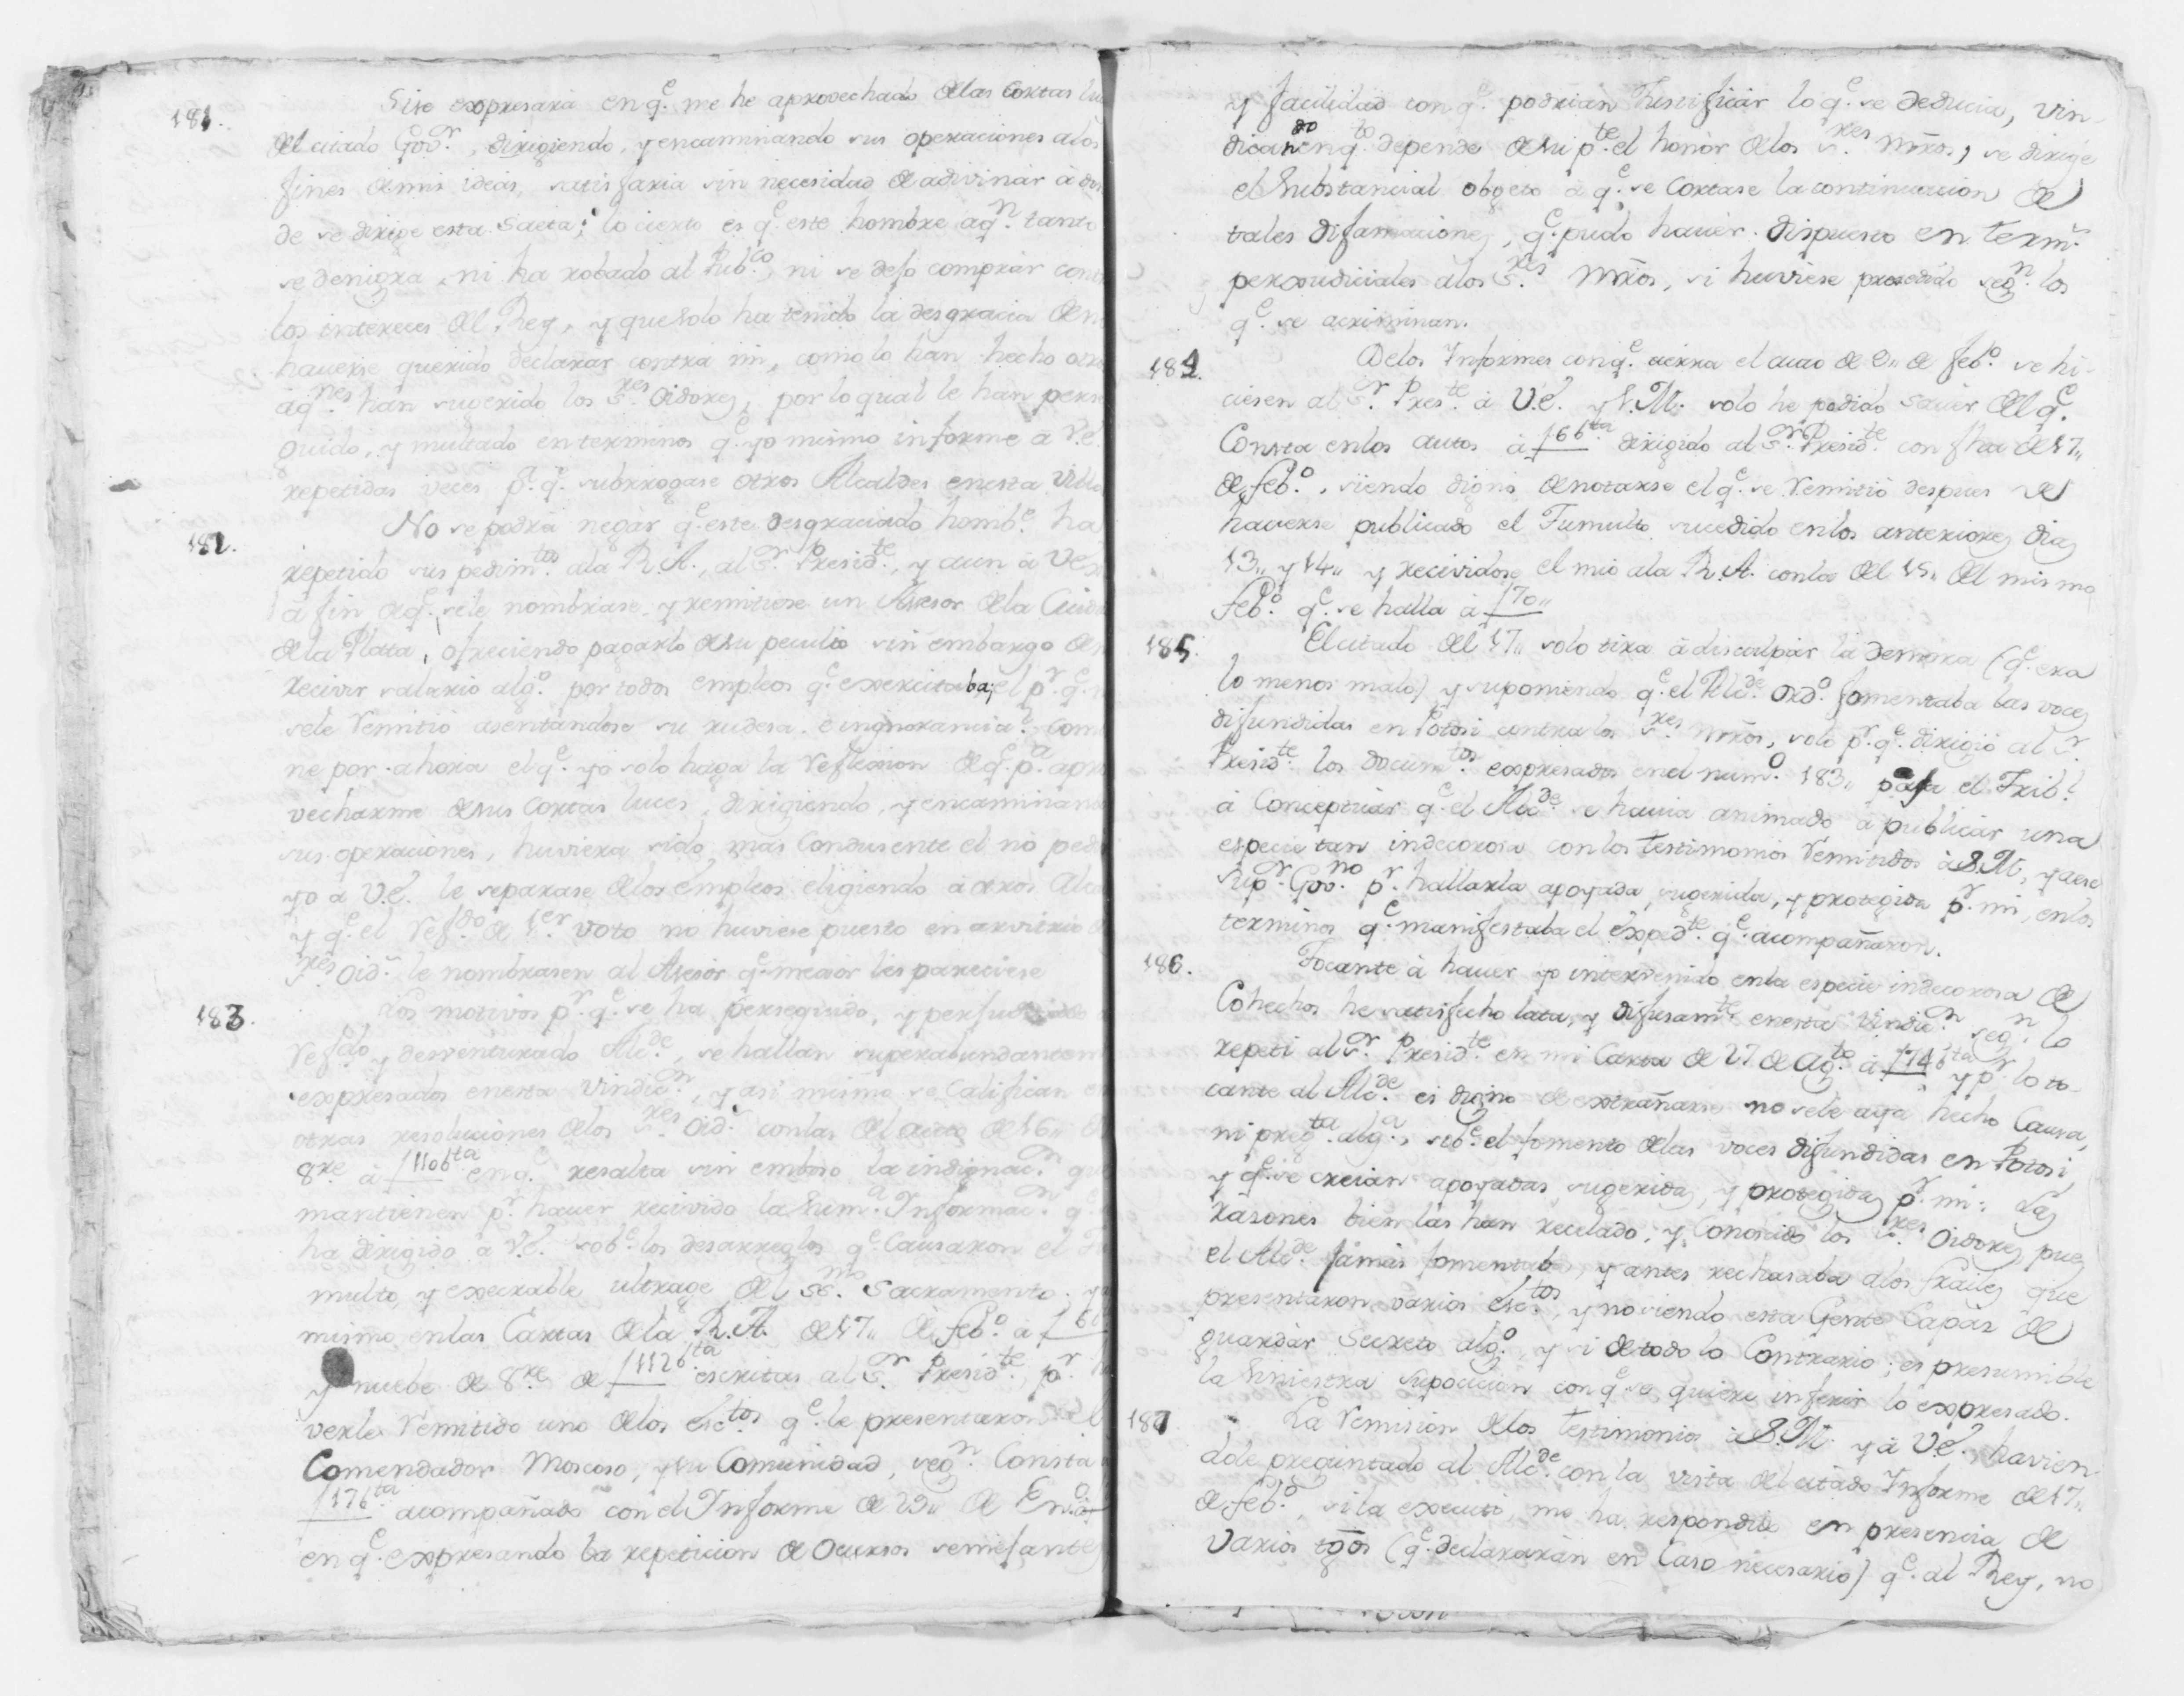 181. Si se expresara en q.e me he aprovechado delas Cortas lu
del citado Gov.r, dirigiendo, y encaminando sus operaciones alos
fines de mis ideas, satisfaria sin necesidad de adivinar á don
de se dirige esta Saeta; lo cierto es q.e este hombre aq.n tanto
se denigra, ni ha robado al Pub.co, ni se dejo comprar cont
los intereces del Rey, y que solo ha tenido la desgracia de n
haverse querido declarar contra mi, como lo han hecho otro
áq.nes han sugerido los S.res Oidores, por lo qual le han perse
guido, y multado en terminos q.e yo mismo informe a V.E.
repetidas veces p.a q.e subrrogase otros Alcaldes en esta Villa
182. No se podrá negar q.e este desgraciado homb.e ha
repetido sus pedim.tos ala R.A., al S.r Presid.te, y aun á V.E.
á fin de q.e se le nombrase, y remitiese un Asesor dela Ciuda
dela Plata, ofreciendo pagarlo de su peculio sin embargo de n
recivir salario alg.o por todos empleos q.e exercitaba; el p.r q.e
sele remitió asentandose su rudesa, é ingnorancia. Com
ne por ahora el q.e yo solo haga la reflexion de q.e p.a apro
vecharme de sus Cortas luces, dirigiendo, y encaminand
sus operaciones, huviera sido mas Condusente el no pedi
yo a V.E. le separase delos empleos eligiendo á otros Alca
y q.e el Ref.do de 1.er voto no huviese puesto en arvitrio d
S.res Oid.s le nombrasen al Asesor q.e mejor les pareciese
183. Los motivos p.r q.e se ha perseguido, y perjudicado
Ref.do y desventurado Alc.de, se hallan superabundantem
expresados en esta vindic.n, y asi mismo se Califican en
otras resoluciones delos S.res Oid.s con las del auto de 16,, d
8.re á f 110 6.ta en q.e resalta sin emboso la indignac.n que
mantienen p.r haver recivido la Sum.a Informac.n q.e
ha dirigido á V.E. sob.e los desarreglos q.e Causaron el Tu
multo, y execrable ultrage del SS.mo Sacramento; y
mismo en las Cartas dela R.A. de 17,, de Feb.o á f 66
y nuebe de 8.re de f 112 6.ta escritas al S.r Presid.te, p.r h
verle remitido uno delos Esc.tos q.e le presentaron el
Comendador Moscoso, y su Comunidad, seg.n Consta
f 17 6.ta acompañado con el Informe de 29,, de En.o
en q.e expresando la repeticion de Ocursos semejantes
y facilidad con q.e podrian Justificar lo q.e se deducia, vin
dicando en q.to depende de su p.te el honor delos S.res Mrõs, se dirige
el Substancial obgeto á q.e se Cortase la continuacion de
tales difamaciones, q.e pudo haver dispuesto en term.s
perjudiciales alos S.res Mrõs, si huviese procedido seg.n los
q.e se acriminan.
184. Delos Informes con q.e cierra el auto de 9,, de Feb.o se hi
ciesen al S.r Pres.te á V.E. y S.M. solo he podido Sacar del q.e
Consta en los autos á f 66 ta dirigido al S.r Presid.te con fha de 17,,
de Feb.o, siendo digno de notarse el q.e se remitió despues de
haverse publicado el Tumulto sucedido en los anteriores dias
13,, y 14,, y recividose el mio ala R.A. con los del 15,, del mismo
Feb.o q.e se halla á f 70,,
185. El citado del 17,, solo tira á disculpar la demora (q.e era
lo menos malo) y suponiendo q.e el Alc.de Ord.o fomentaba las voces
difundidas en Potosi contra los S.res Mrõs, solo p.r q.e dirigió al S.r
Presid.te los docum.tos expresados en el num.o 183,, pasa el Trib.l
á Conceptuar q.e el Alc.de se havia animado á publicar una
especie tan indecorosa con los testimonios remitidos á S.M., y a ese
Sup.r Gov.no p.r hallarla apoyada, sugerida, y protegida p.r mi, en los
terminos q.e manifestaba el exped.te q.e acompañaron.
186. Tocante á haver yo intervenido en la especie indecorosa de
Cohechos he satisfecho lata, y difusam.te en esta Vindic.n seg.n lo
repeti al S.r Presid.te en mi Carta de 27 de Ag.to á f 74 6.ta y p.r lo to
cante al Alc.de es digno de extrañarse no sele aya hecho Causa,
ni preg.ta alg.a, sob.e el fomento delas voces difundidas en Potosi,
y q.e se creian apoyadas, sugeridas, y protegidas p.r mi: Las
rasones bien las han recelado, y Conosido los S.res Oidores pues
el Alc.de jamas fomentaba, y antes rechasaba alos frailes que
presentaron varios Esc.tos, y no siendo esta Gente Capáz de
guardár Secreto alg.o, y si de todo lo Contrario; es presumible
la Siniestra Suposicion con q.e se quiere inferir lo expresado.
187 La remision delos testimonios á S.M. y á V.E., havien
dole preguntado al Alc.de con la vista del citado Informe de 17,,
de Feb.o, si la executó, me ha respondido en presencia de
varios tgõs (q.e declararán en Caso necesario) q.e al Rey, no